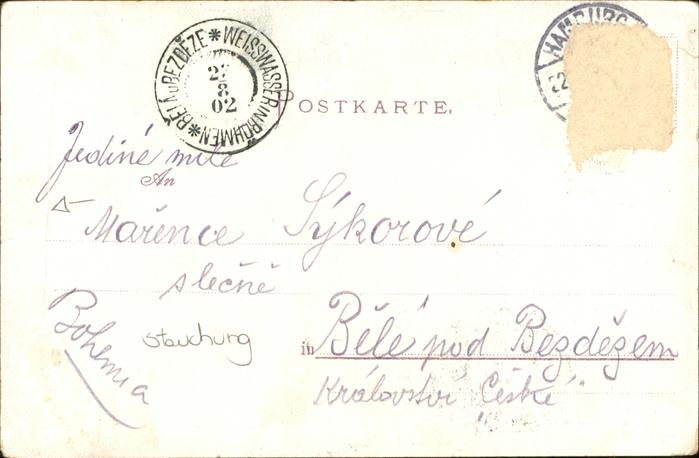 BĚLÁ u BEZDĚZE * WEISSWASSER IN BÖHMEN *
8
02
HAMBURG
POSTKARTE.
Jediné milé
An
Mařence Sýkorové
slečně
Bohemia
stauchung
in Bělé pod Bezdězem
Království „České"